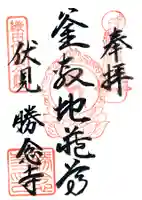 奉拝
釜敷地蔵尊
伏見
勝念寺